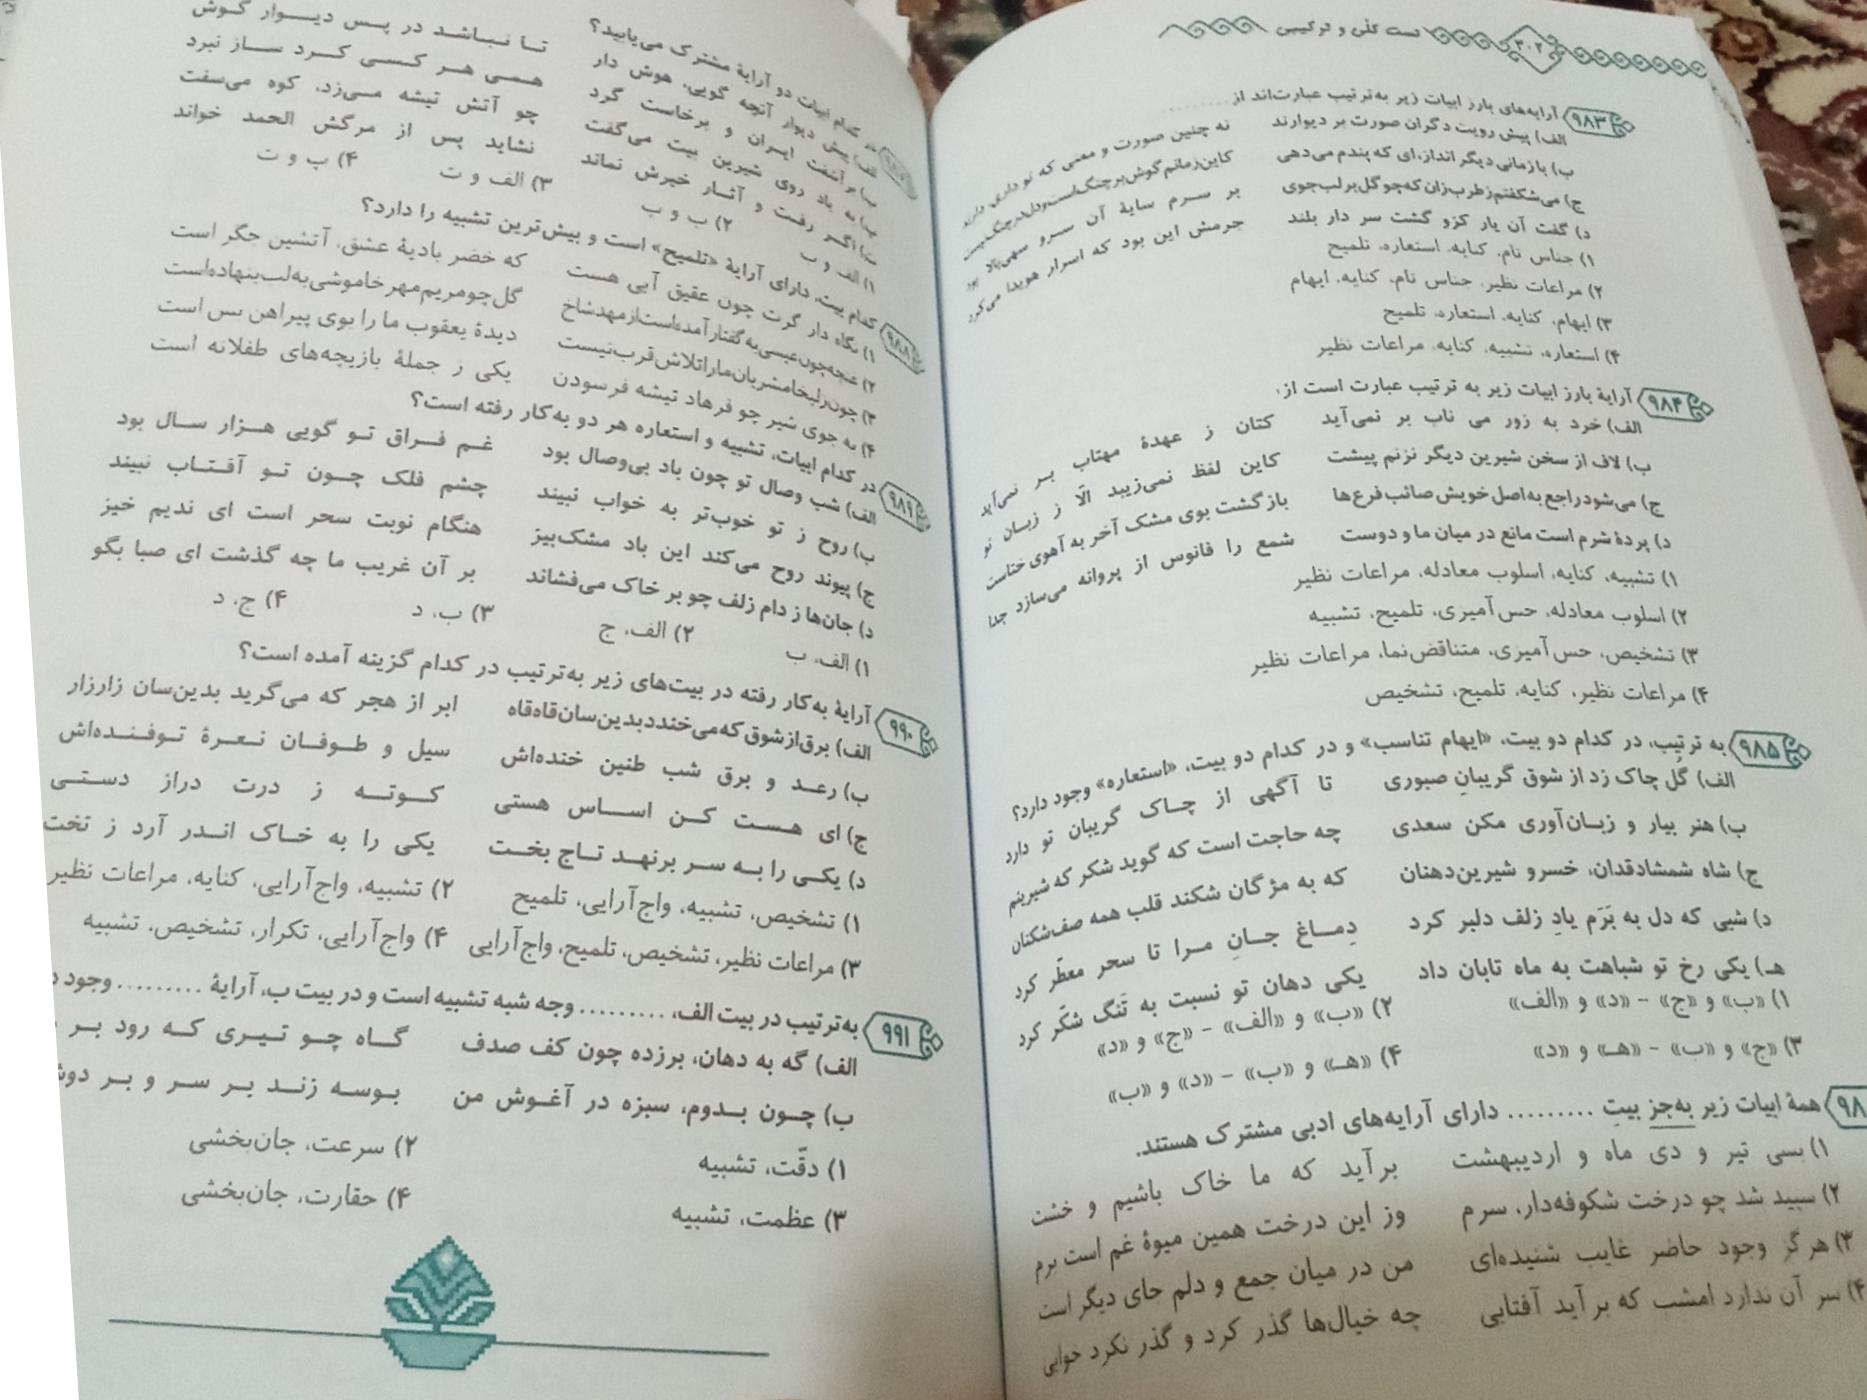 ۳۰۲
تست کلّی و ترکیبی
۹۸۳
آرایه‌های بارز ابیات زیر به‌ترتیب عبارت‌اند از .........
الف) پیش رویت دگران صورت بر دیوارند نه چنین صورت و معنی که تو داری، دارند
ب) با زمانی دیگر انداز، ای که پندم می‌دهی کاین زمانم گوش بر چنگ است و دل در چنگ نیست
ج) می‌شکفتم ز طرب زان که چو گل بر لب جوی بر سرم سایهٔ آن سرو سهی‌بالا بود
د) گفت آن یار کزو گشت سر دار بلند جرمش این بود که اسرار هویدا می‌کرد
۱) جناس تام، کنایه، استعاره، تلمیح
۲) مراعات نظیر، جناس تام، کنایه، ایهام
۳) ایهام، کنایه، استعاره، تلمیح
۴) استعاره، تشبیه، کنایه، مراعات نظیر
۹۸۴
آرایهٔ بارز ابیات زیر به ترتیب عبارت است از:
الف) خرد به زور می ناب بر نمی‌آید کتان ز عهدهٔ مهتاب بر نمی‌آید
ب) لاف از سخن شیرین دیگر نزنم پیشت کاین لفظ نمی‌زیبد الّا ز زبان تو
ج) می‌شود راجع به اصل خویش صائب فرع‌ها بازگشت بوی مشک آخر به آهوی ختاست
د) پردهٔ شرم است مانع در میان ما و دوست شمع را فانوس از پروانه می‌سازد جدا
۱) تشبیه، کنایه، اسلوب معادله، مراعات نظیر
۲) اسلوب معادله، حس‌آمیزی، تلمیح، تشبیه
۳) تشخیص، حس‌آمیزی، متناقض‌نما، مراعات نظیر
۴) مراعات نظیر، کنایه، تلمیح، تشخیص
۹۸۵
به ترتیب، در کدام دو بیت، «ایهام تناسب» و در کدام دو بیت، «استعاره» وجود دارد؟
الف) گل چاک زد از شوق گریبانِ صبوری تا آگهی از چاک گریبان تو دارد
ب) هنر بیار و زبان‌آوری مکن سعدی چه حاجت است که گوید شکر که شیرینم
ج) شاه شمشادقدان، خسرو شیرین‌دهنان که به مژگان شکند قلب همه صف‌شکنان
د) شبی که دل به بَرَم یادِ زلف دلبر کرد دِماغ جانِ مرا تا سحر معطّر کرد
هـ) یکی رخ تو شباهت به ماه تابان داد یکی دهان تو نسبت به تَنگ شکّر کرد
۱) «ب» و «ج» - «د» و «الف» ۲) «ب» و «الف» - «ج» و «د»
۳) «ج» و «ب» - «هـ» و «د» ۴) «هـ» و «ب» - «د» و «ب»
همهٔ ابیات زیر به‌جز بیتِ ......... دارای آرایه‌های ادبی مشترک هستند.
۱) بسی تیر و دی ماه و اردیبهشت برآید که ما خاک باشیم و خشت
۲) سپید شد چو درخت شکوفه‌دار، سرم وز این درخت همین میوهٔ غم است برم
۳) هرگز وجود حاضر غایب شنیده‌ای من در میان جمع و دلم جای دیگر است
۴) سر آن ندارد امشب که برآید آفتابی چه خیال‌ها گذر کرد و گذر نکرد خوابی
کدام ابیات دو آرایهٔ مشترک می‌یابید؟
الف) پیش دیوار آنچه گویی، هوش دار تا نباشد در پس دیوار گوش
ب) برآشفت ایران و برخاست گرد همی هر کسی کرد ساز نبرد
پ) به یاد روی شیرین بیت می‌گفت چو آتش تیشه می‌زد، کوه می‌سفت
ت) اگر رفت و آثار خیرش نماند نشاید پس از مرگش الحمد خواند
۱) الف و ب ۲) ب و پ ۳) الف و ت ۴) پ و ت
۹۸۸
کدام بیت، دارای آرایهٔ «تلمیح» است و بیش‌ترین تشبیه را دارد؟
۱) نگاه دار گرت چون عقیق آبی هست که خضر بادیهٔ عشق، آتشین جگر است
۲) غنچه چون عیسی به گفتار آمده است از مهد شاخ گل چو مریم مهر خاموشی به لب بنهاده است
۳) چون زلیخا مشربان ما را تلاش قرب نیست دیدهٔ یعقوب ما را بوی پیراهن بس است
۴) به جوی شیر چو فرهاد تیشه فرسودن یکی ز جملهٔ بازیچه‌های طفلانه است
۹۸۹
در کدام ابیات، تشبیه و استعاره هر دو به‌کار رفته است؟
الف) شب وصال تو چون باد بی‌وصال بود غم فراق تو گویی هزار سال بود
ب) روح ز تو خوب‌تر به خواب نبیند چشم فلک چون تو آفتاب نبیند
ج) پیوند روح می‌کند این باد مشک‌بیز هنگام نوبت سحر است ای ندیم خیز
د) جان‌ها ز دام زلف چو بر خاک می‌فشاند بر آن غریب ما چه گذشت ای صبا بگو
۱) الف، ب ۲) الف، ج ۳) ب، د ۴) ج، د
۹۹۰
آرایهٔ به‌کار رفته در بیت‌های زیر به‌ترتیب در کدام گزینه آمده است؟
الف) برق از شوق که می‌خندد بدین‌سان قاه‌قاه ابر از هجر که می‌گرید بدین‌سان زارزار
ب) رعد و برق شب طنین خنده‌اش سیل و طوفان نعرهٔ توفنده‌اش
ج) ای هست کن اساس هستی کوته ز درت دراز دستی
د) یکی را به سر برنهد تاج بخت یکی را به خاک اندر آرد ز تخت
۱) تشخیص، تشبیه، واج‌آرایی، تلمیح ۲) تشبیه، واج‌آرایی، کنایه، مراعات نظیر
۳) مراعات نظیر، تشخیص، تلمیح، واج‌آرایی ۴) واج‌آرایی، تکرار، تشخیص، تشبیه
۹۹۱
به‌ترتیب در بیت الف، ......... وجه شبه تشبیه است و در بیت ب، آرایهٔ ......... وجود
الف) گه به دهان، برزده چون کف صدف گاه چو تیری که رود بر
ب) چون بدوم، سبزه در آغوش من بوسه زند بر سر و بر دوش
۱) دقّت، تشبیه ۲) سرعت، جان‌بخشی
۳) عظمت، تشبیه ۴) حقارت، جان‌بخشی